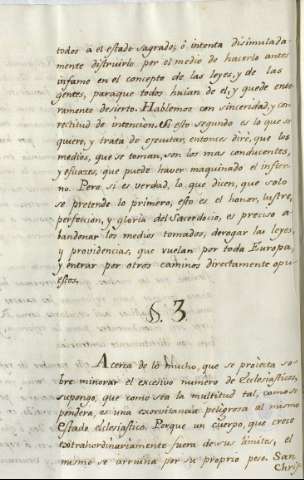 todos à el estado sagrado; ò intenta disimulada-
mente distruirlo por el medio de hacerlo antes
infame en el concepto de las leyes, y de las
gentes, paraque todos huian de el, y quede ente-
ramente desierto. Hablemos con sinceridad, y con
rectitud de intencion. Si esto segundo es lo que se
quere, y trata de executar, entonces diré, que los
medios, que se toman, son los mas conducentes,
y eficaces, que puede haver maquinado el infier-
no. Pero si es verdad, lo que dicen, que solo
se pretende lo primero, esto es el honor, lustre,
perfeccion, y gloria del Sacerdocio, es preciso a-
bandonar los medios tomados, derogar las leyes,
y providencias, que vuelan por toda Europa,
y entrar por otros caminos directamente opu-
estos.
§. 3
Acerca de lo mucho, que se projecta so-
bre minorar el excesivo numero de Eclesiasticos,
supongo, que como sea la multitud tal, como se
pondera, es una exorvitancia peligrosa al mismo
estado eclesiastico. Porque un cuerpo, que crece
extrahordinariamente fuera de sus limites, el
mismo se arruina por su proprio peso. San
Chris